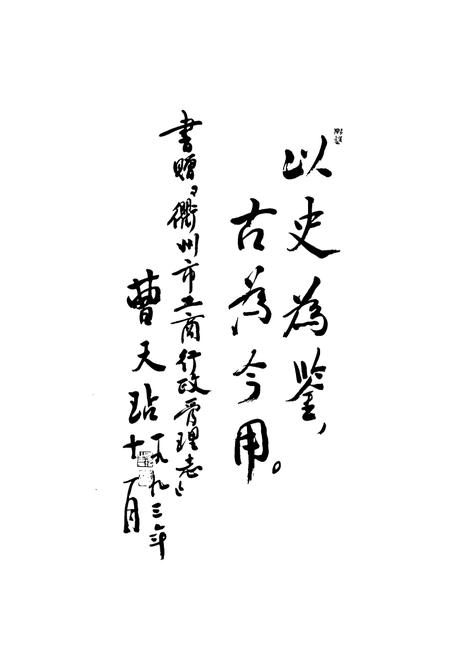 以史為鑒，
古為今用。
書贈《衢州市工商行政管理志》
曹天玷
一九九三年
十一月